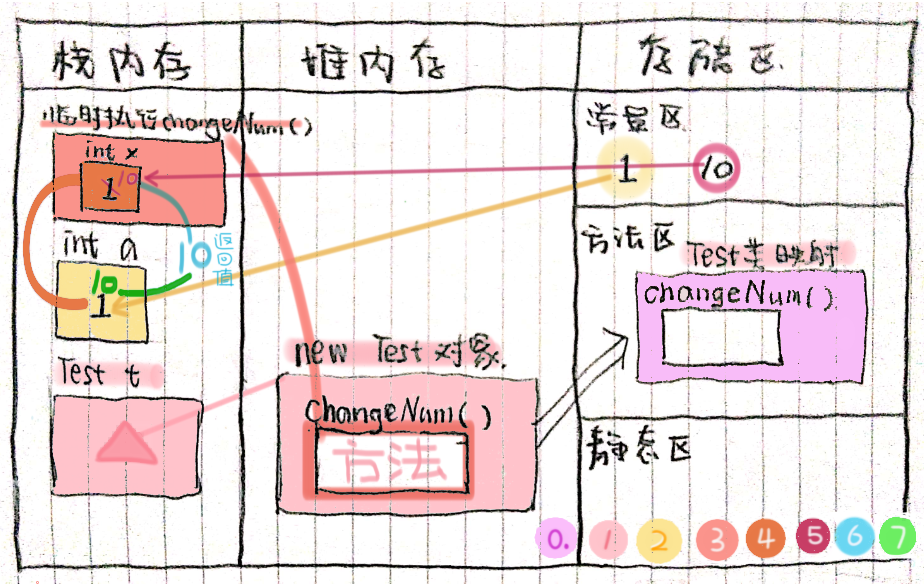 栈内存
堆内存
存储区
临时执行changeNum()
int x
1 10
int a
10
1
10
返回值
Test t
new Test对象.
changeNum()
方法
常量区
1
10
方法区
Test类映射
changeNum()
静态区
0. 1 2 3 4 5 6 7